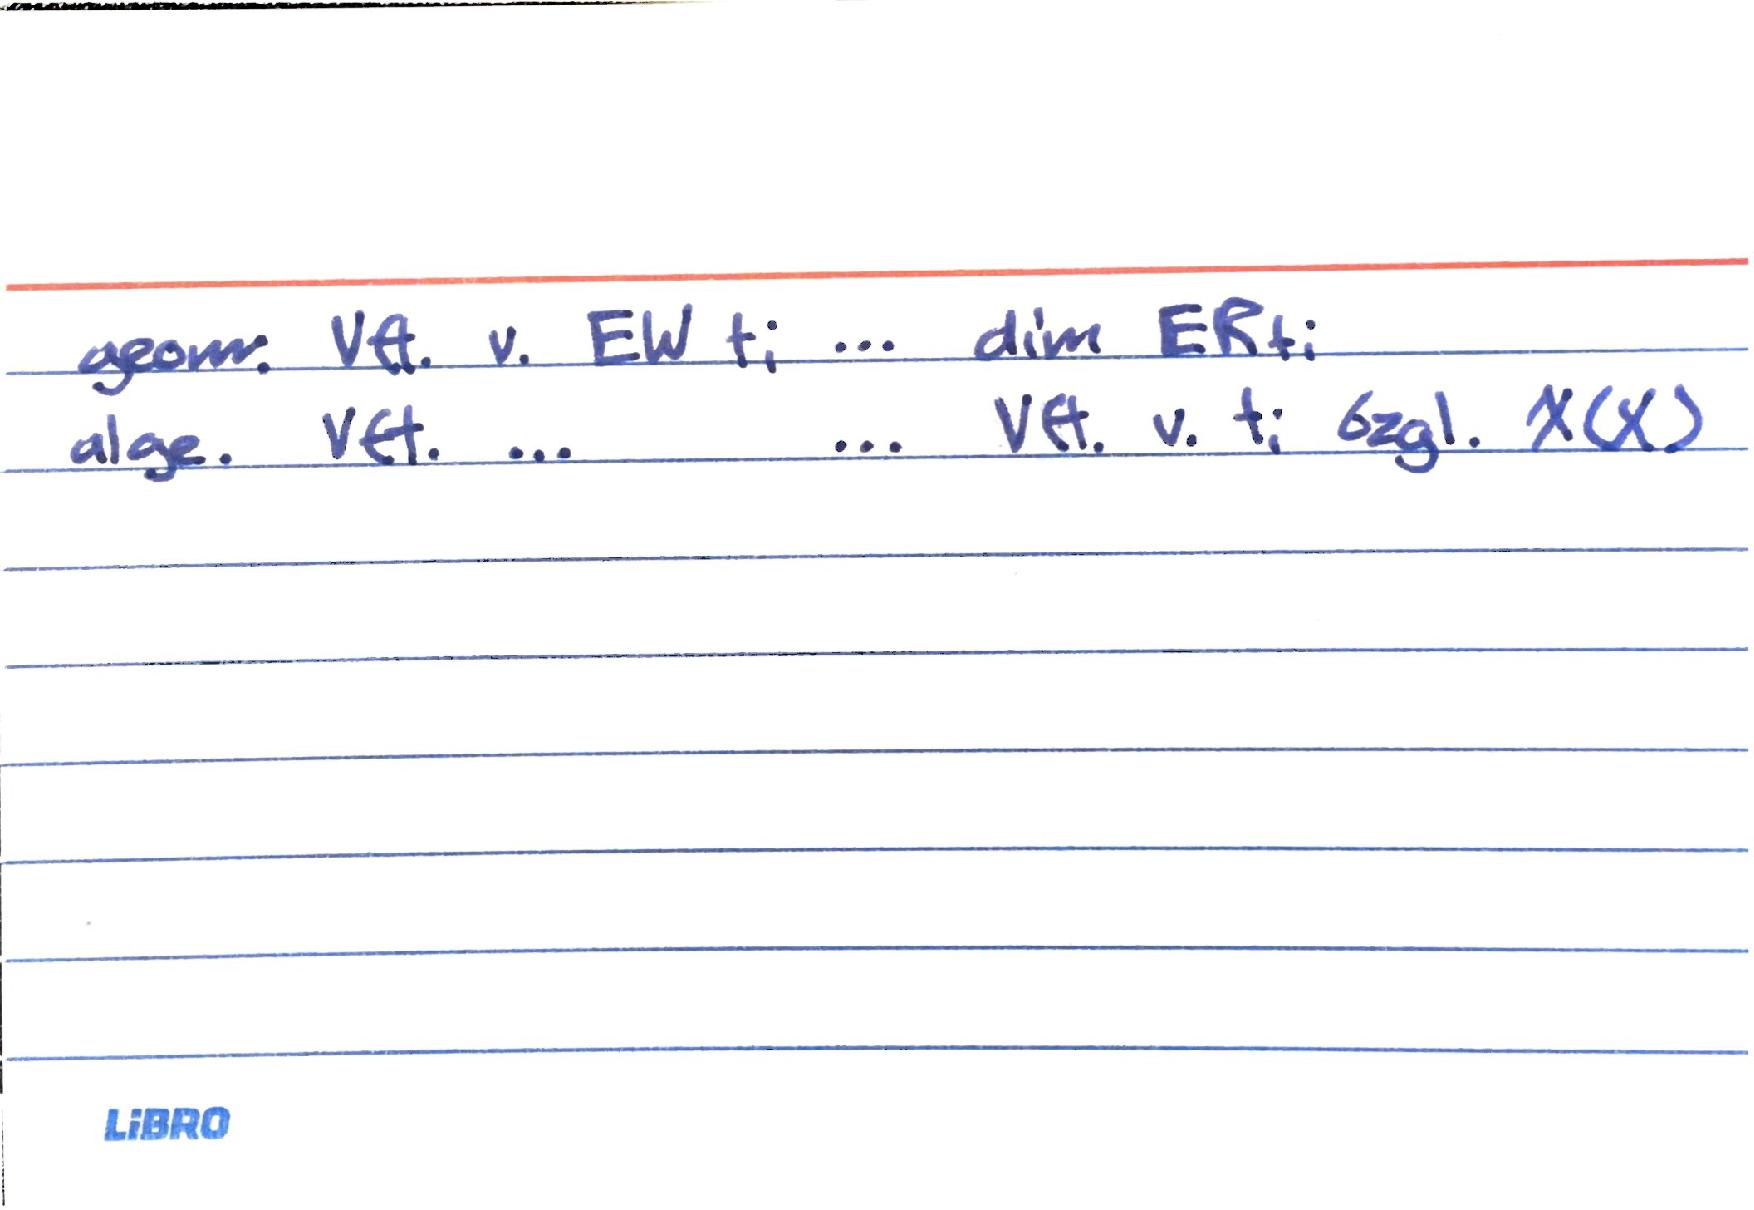 geom. Vft. v. EW tᵢ ... dim ER tᵢ
alge. Vft. ... ... Vft. v. tᵢ bzgl. χ(X)
LiBRO